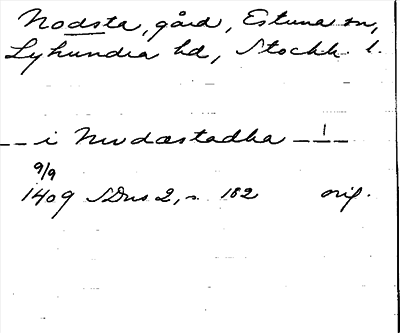 Nodsta, gård, Estuna sn,
Lyhundra hd, Stockh. l.
-- i Nwdastadha -- ! --
9/9
1409 SDns 2, s. 182 orig.